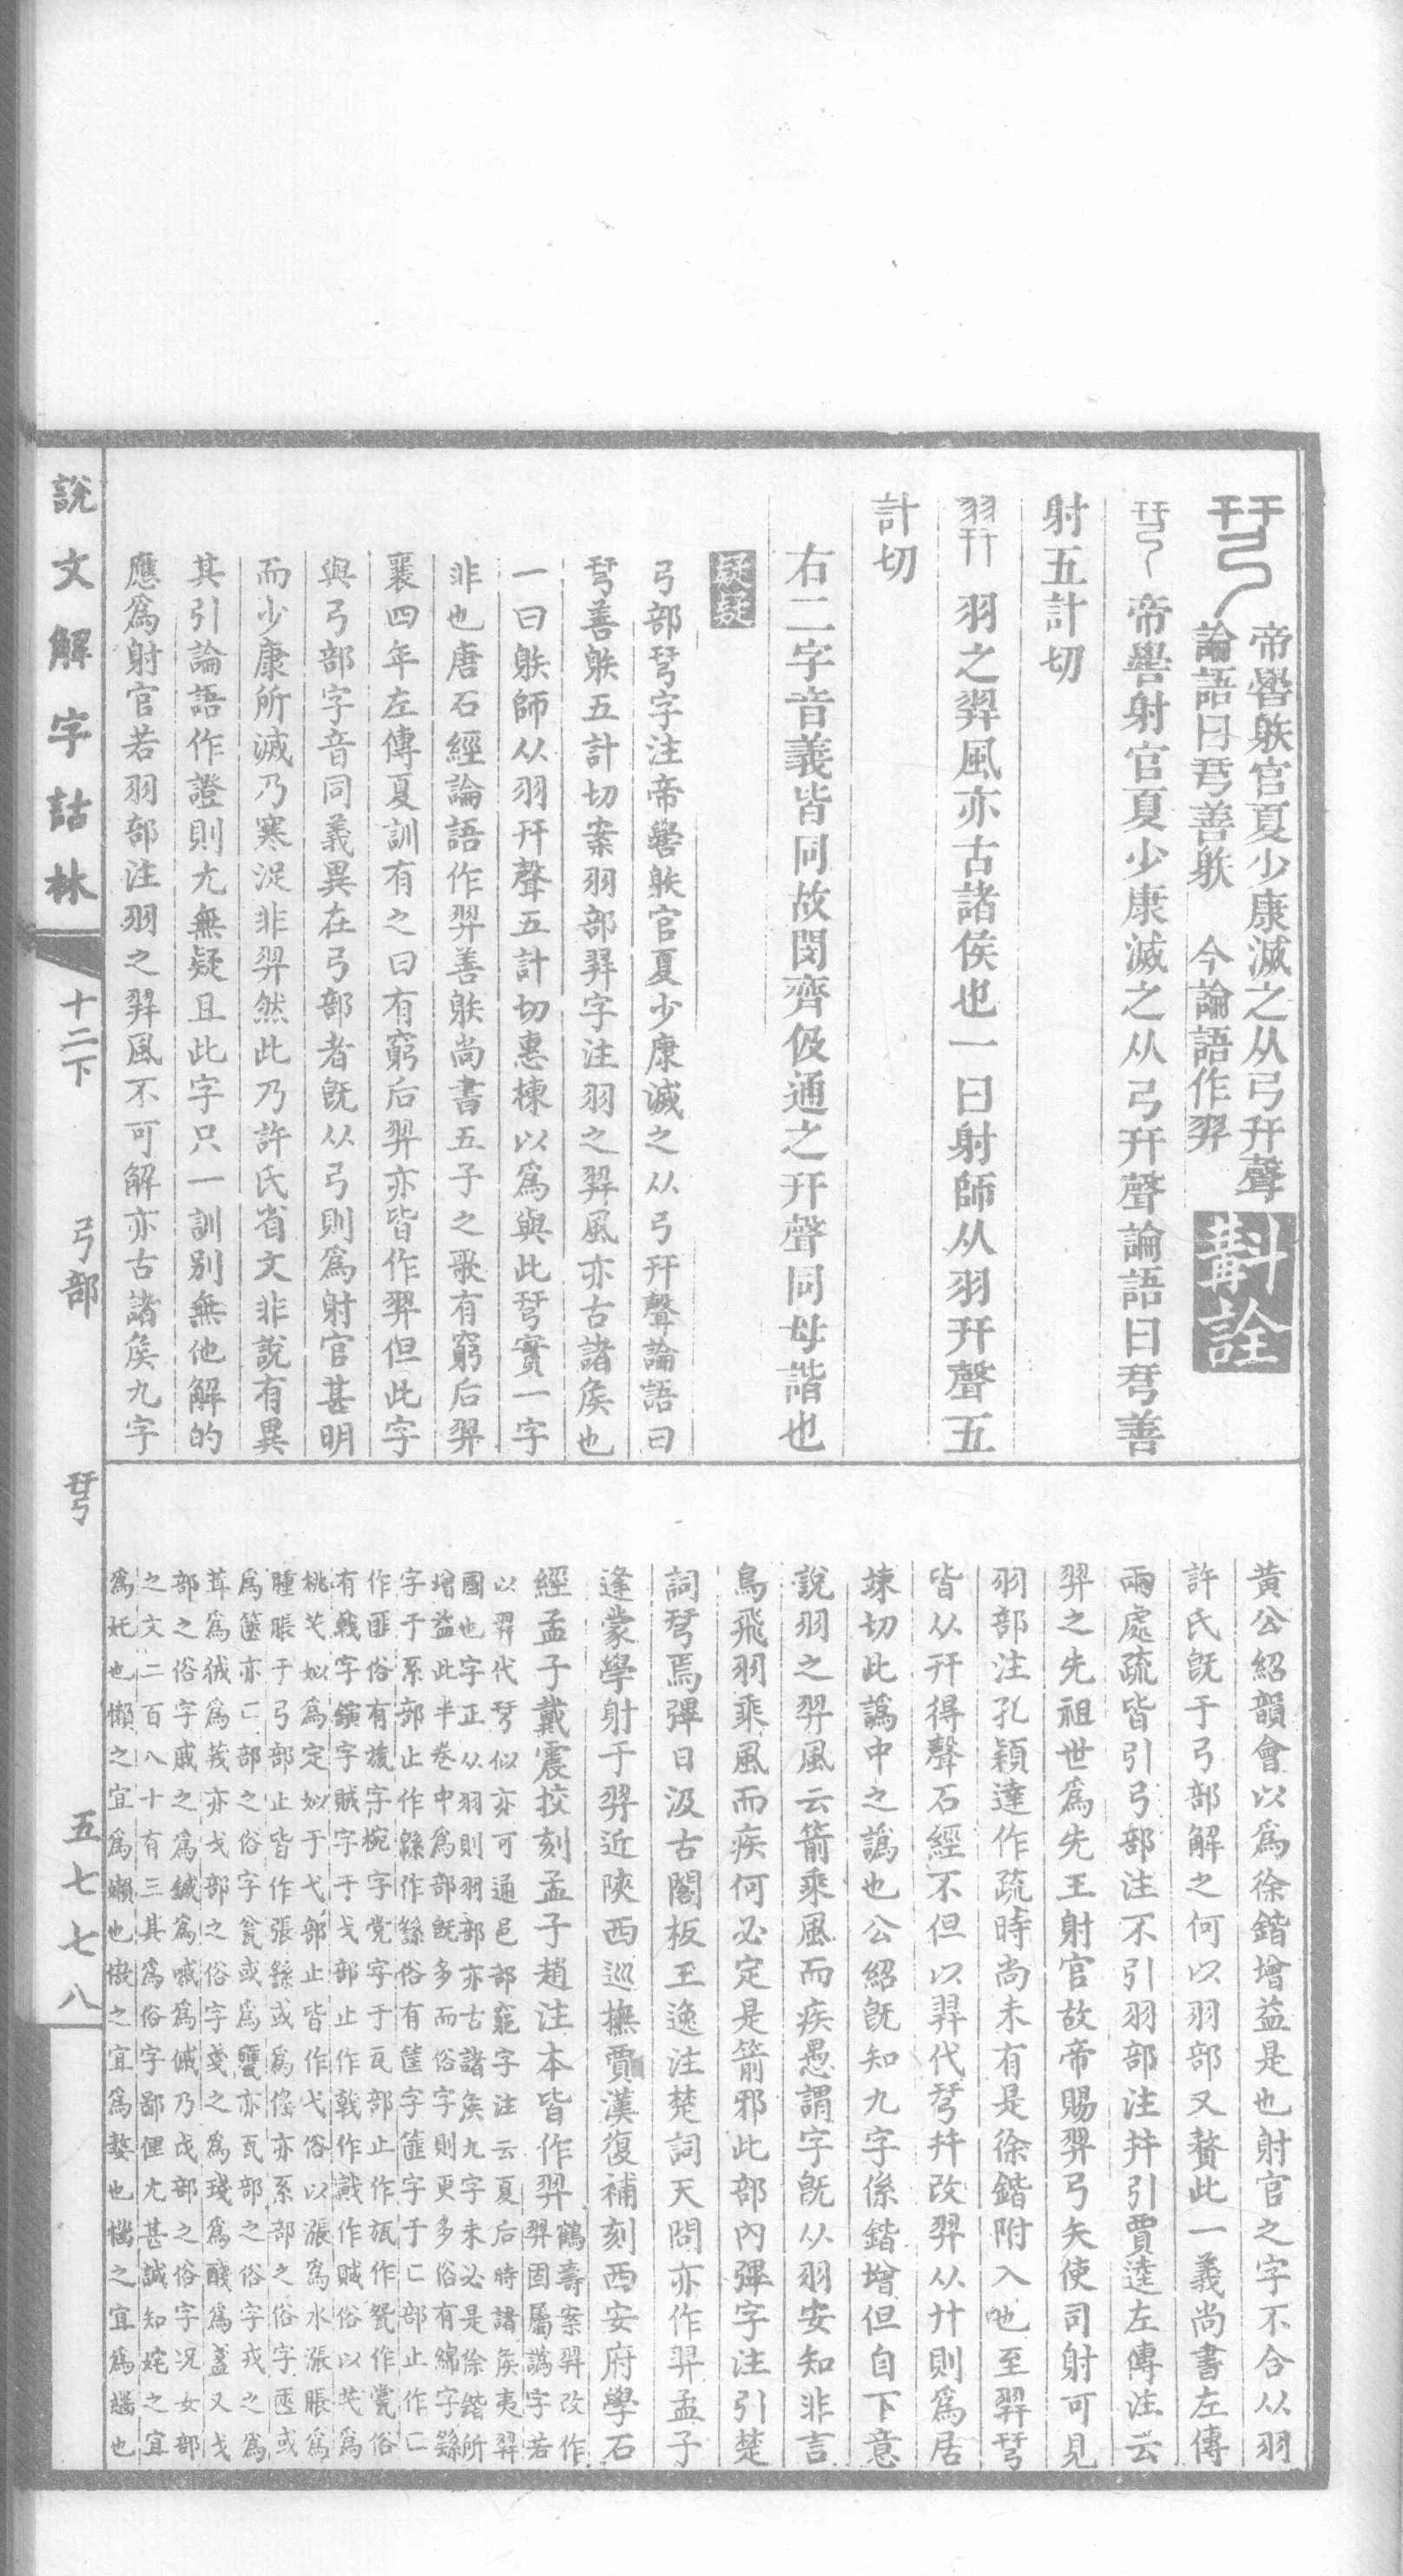 帝嚳䠶官夏少康滅之从弓幵聲
論語曰𢎗善䠶 今論語作羿
斠詮
𢎗帝嚳射官夏少康滅之从弓幵聲論語曰𢎗善
射五計切
羿羽之羿風亦古諸侯也一曰射師从羽幵聲五
計切
右二字音義皆同故閔齊伋通之幵聲同母諧也
弓部𢎗字注帝嚳䠶官夏少康滅之从弓幵聲論語曰
𢎗善䠶五計切案羽部羿字注羽之羿風亦古諸矦也
一曰䠶師从羽幵聲五計切惠棟以爲與此𢎗實一字
非也唐石經論語作羿善䠶尚書五子之歌有窮后羿
襄四年左傳夏訓有之曰有窮后羿亦皆作羿但此字
與弓部字音同義異在弓部者旣从弓則爲射官甚明
而少康所滅乃寒浞非羿然此乃許氏省文非說有異
其引論語作證則尤無疑且此字只一訓別無他解的
應爲射官若羽部注羽之羿風不可解亦古諸矦九字
黃公紹韻會以爲徐鍇增益是也射官之字不合从羽
許氏旣于弓部解之何以羽部又贅此一義尚書左傳
兩處疏皆引弓部注不引羽部注幷引賈逵左傳注云
羿之先祖世爲先王射官故帝賜羿弓矢使司射可見
羽部注孔穎達作疏時尚未有是徐鍇附入也至羿𢎗
皆从幵得聲石經不但以羿代𢎗幷改羿从廾則爲居
竦切此譌中之譌也公紹旣知九字係鍇增但自下意
說羽之羿風云箭乘風而疾愚謂字旣从羽安知非言
鳥飛羽乘風而疾何必定是箭邪此部內彃字注引楚
詞𢎗焉彃日汲古閣板王逸注楚詞天問亦作羿孟子
逢蒙學射于羿近陝西巡撫賈漢復補刻西安府學石
經孟子戴震挍刻孟子趙注本皆作羿鶴壽案羿改作
羿固屬譌字若
以羿代𢎗似亦可通邑部竆字注云夏后時諸矦夷羿
國也字正从羽則羽部亦古諸矦九字未必是徐鍇所
增益此半卷中爲部旣多而俗字則更多俗有綿字緜
字于系部止作緜作緐俗有筐字篚字于匚部止作匚
作匪俗有㼚字椀字党字于瓦部止作瓬作㼝作瓽俗
有戟字鑕字賊字于戈部止作戟作戭作賊俗以芅爲
桃芅姒爲定姒于弋部止皆作弋俗以漲爲水漲脹爲
腫脹于弓部止皆作張
爲篋亦匚部之俗字瓮或爲罋亦瓦部之俗字戎之爲
茸爲絨爲莪亦戈部之俗字戔之爲琖爲醆爲盞又戈
部之俗字戚之爲鏚爲慼爲傶乃戉部之俗字况女部
之文二百八十有三其爲俗字鄙俚尤甚誠知姹之宜
爲奼也懶之宜爲嬾也慠之宜爲嫯也惱之宜爲㛴也
說文解字詁林
十二下
弓部
𢎗
五七七八